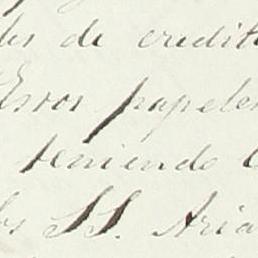 de credit
Esos papeles
teniendo
SS. Aria